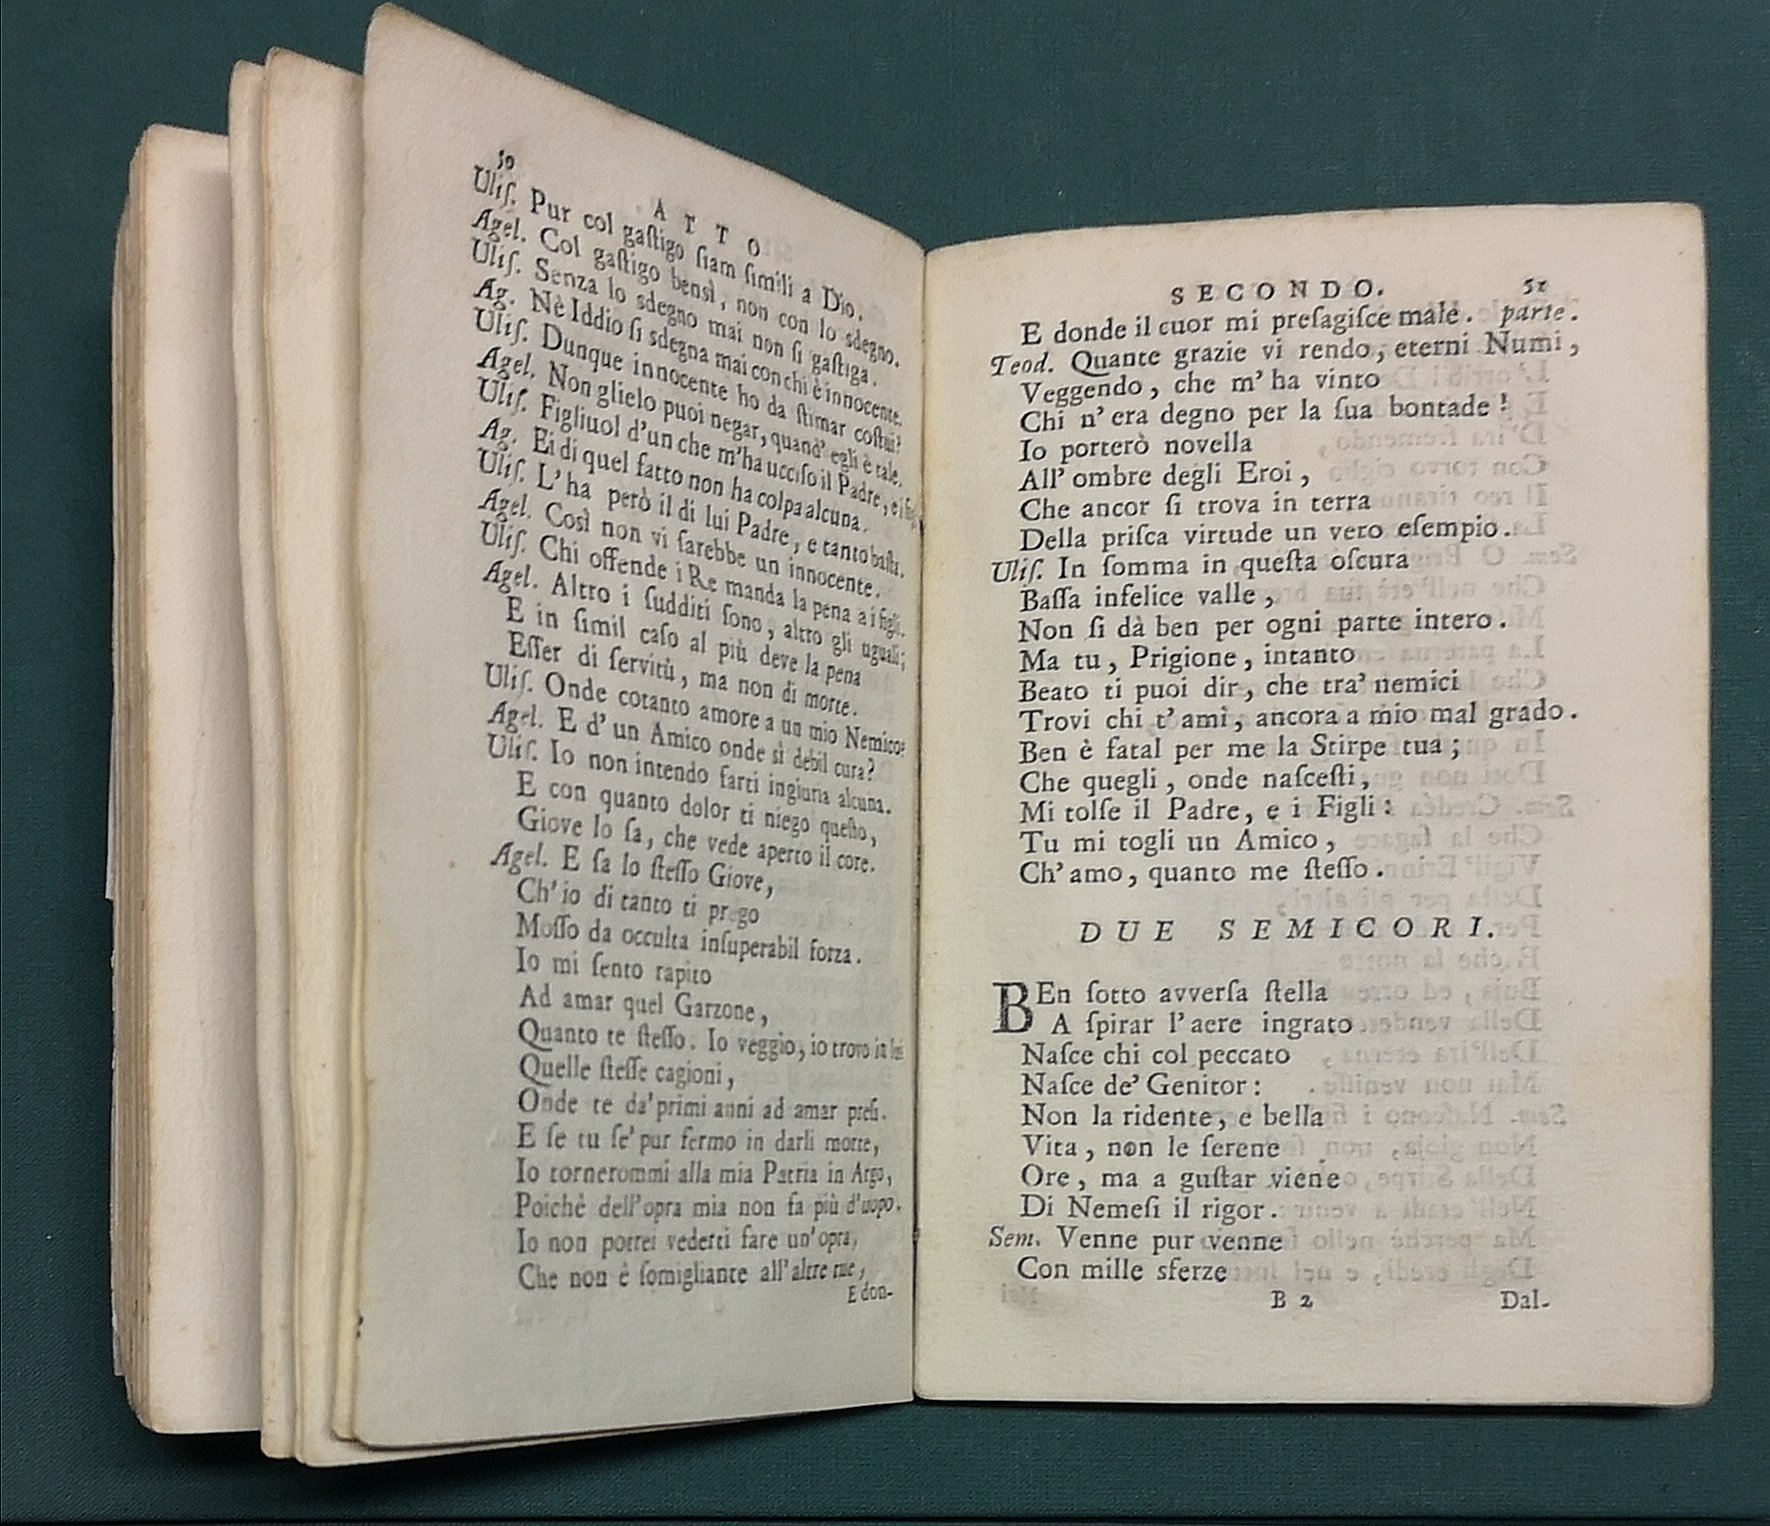 50
ATTO
Uliſ. Pur col gaſtigo ſiam ſimili a Dio.
Agel. Col gaſtigo bensì, non con lo sdegno.
Uliſ. Senza lo sdegno mai non ſi gaſtiga.
Ag. Nè Iddio ſi sdegna mai con chi è innocente.
Uliſ. Dunque innocente ho da ſtimar coſtui?
Agel. Non glielo puoi negar, quand' egli è tale.
Uliſ. Figliuol d'un che m'ha ucciſo il Padre, e i
Ag. Ei di quel fatto non ha colpa alcuna.
Uliſ. L'ha però il di lui Padre, e tanto baſta.
Agel. Così non vi ſarebbe un innocente.
Uliſ. Chi offende i Re manda la pena a i figli.
Agel. Altro i ſudditi ſono, altro gli uguali;
E in ſimil caſo al più deve la pena
Eſſer di ſervitù, ma non di morte.
Uliſ. Onde cotanto amore a un mio Nemico?
Agel. E d'un Amico onde sì debil cura?
Uliſ. Io non intendo farti ingiuria alcuna.
E con quanto dolor ti niego queſto,
Giove lo ſa, che vede aperto il core.
Agel. E ſa lo ſteſſo Giove,
Ch'io di tanto ti prego
Moſſo da occulta inſuperabil forza.
Io mi ſento rapito
Ad amar quel Garzone,
Quanto te ſteſſo. Io veggio, io trovo in lui
Quelle ſteſſe cagioni,
Onde te da'primi anni ad amar preſi.
E ſe tu ſe'pur fermo in darli morte,
Io tornerommi alla mia Patria in Argo,
Poichè dell'opra mia non fa più d'uopo.
Io non potrei vederti fare un'opra,
Che non è ſomigliante all'altre tue,
E don-
SECONDO. 51
E donde il cuor mi preſagiſce male. parte.
Teod. Quante grazie vi rendo, eterni Numi,
Veggendo, che m'ha vinto
Chi n'era degno per la ſua bontade!
Io porterò novella
All'ombre degli Eroi,
Che ancor ſi trova in terra
Della priſca virtude un vero eſempio.
Uliſ. In ſomma in queſta oſcura
Baſſa infelice valle,
Non ſi dà ben per ogni parte intero.
Ma tu, Prigione, intanto
Beato ti puoi dir, che tra'nemici
Trovi chi t'amì, ancora a mio mal grado.
Ben è fatal per me la Stirpe tua;
Che quegli, onde naſceſti,
Mi tolſe il Padre, e i Figli:
Tu mi togli un Amico,
Ch'amo, quanto me ſteſſo.
DUE SEMICORI.
BEn ſotto avverſa ſtella
A ſpirar l'aere ingrato
Naſce chi col peccato
Naſce de'Genitor:
Non la ridente, e bella
Vita, non le ſerene
Ore, ma a guſtar viene
Di Nemeſi il rigor.
Sem. Venne pur venne
Con mille sferze
B 2 Dal-